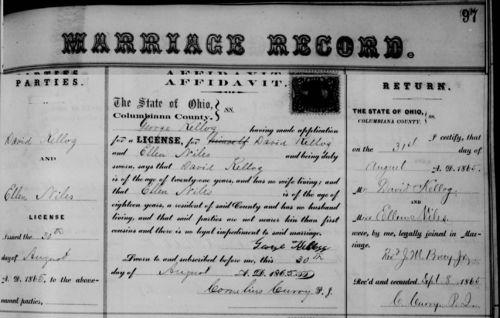 97
MARRIAGE RECORD.
PARTIES.
PARTIES.
David Kellog
AND
Ellen Niles
LICENSE
Issued the 30th
day of August
A. D. 1865, to the above-
named parties.
AFFIDAVIT
AFFIDAVIT.
The State of Ohio,
Columbiana County. } SS.
George Kellog having made application
for a LICENSE, for himself David Kellog
and Ellen Niles and being duly
sworn, says that David Kellog
is of the age of twenty-one years, and has no wife living; and
that Ellen Niles is of the age of
eighteen years, a resident of said County and has no husband
living, and that said parties are not nearer kin than first
cousins and there is no legal impediment to said marriage.
George Kellogg
Sworn to and subscribed before me, this 30th
day of August A. D. 1865.
Cornelius Curry P. J.
RETURN.
THE STATE OF OHIO,
COLUMBIANA COUNTY. } SS.
I certify, that
on the 31st day of
August A. D. 1865
Mr David Kellog
AND
Miss Ellen Niles
were, by me, legally joined in Mar-
riage.
Rev. J. M.
Rec'd and recorded Sept 8 1865
C. Curry P. J.